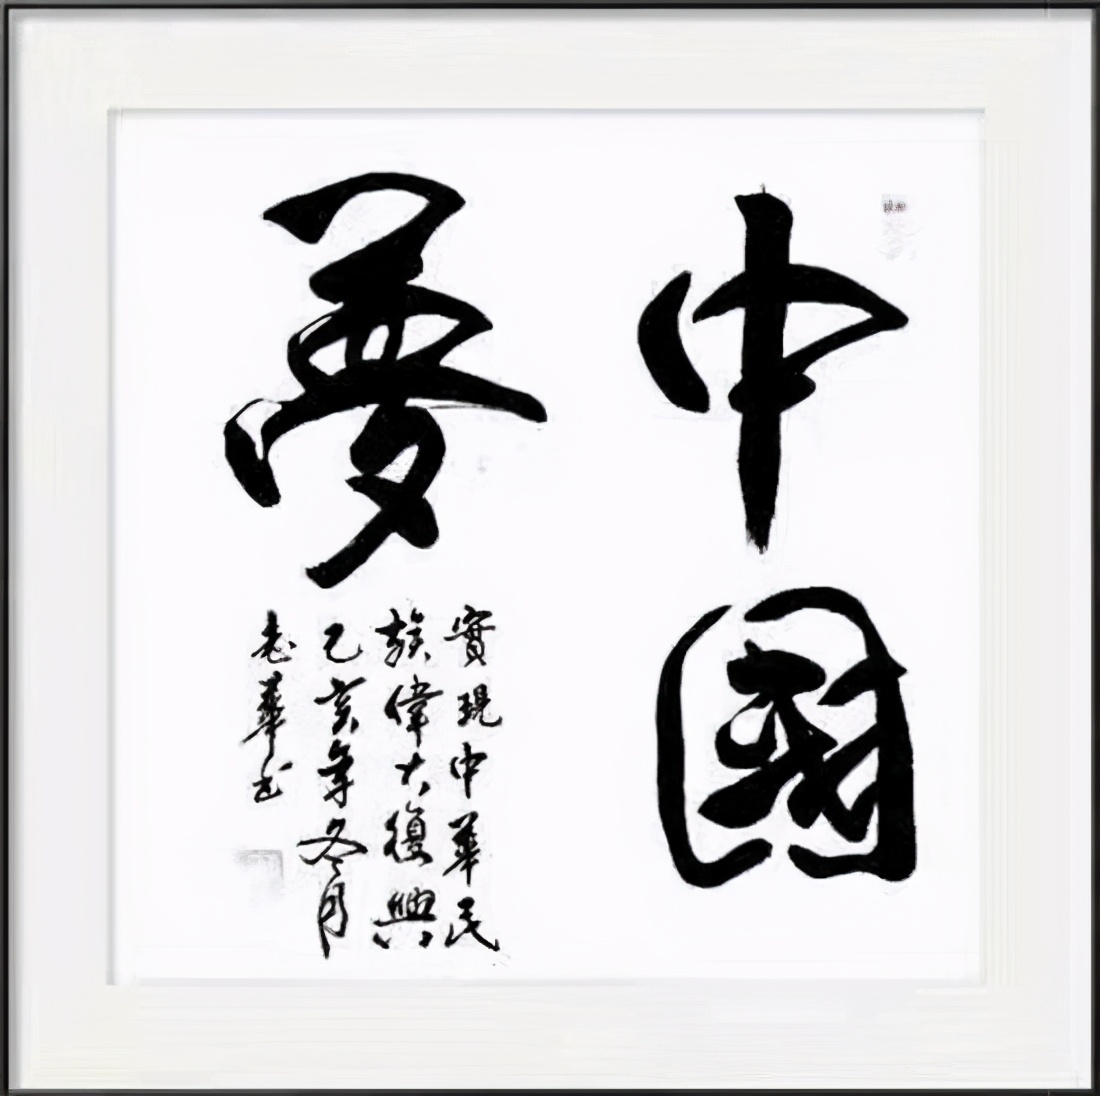 中國
夢
實現中華民
族偉大復興
己亥年冬月
老華书